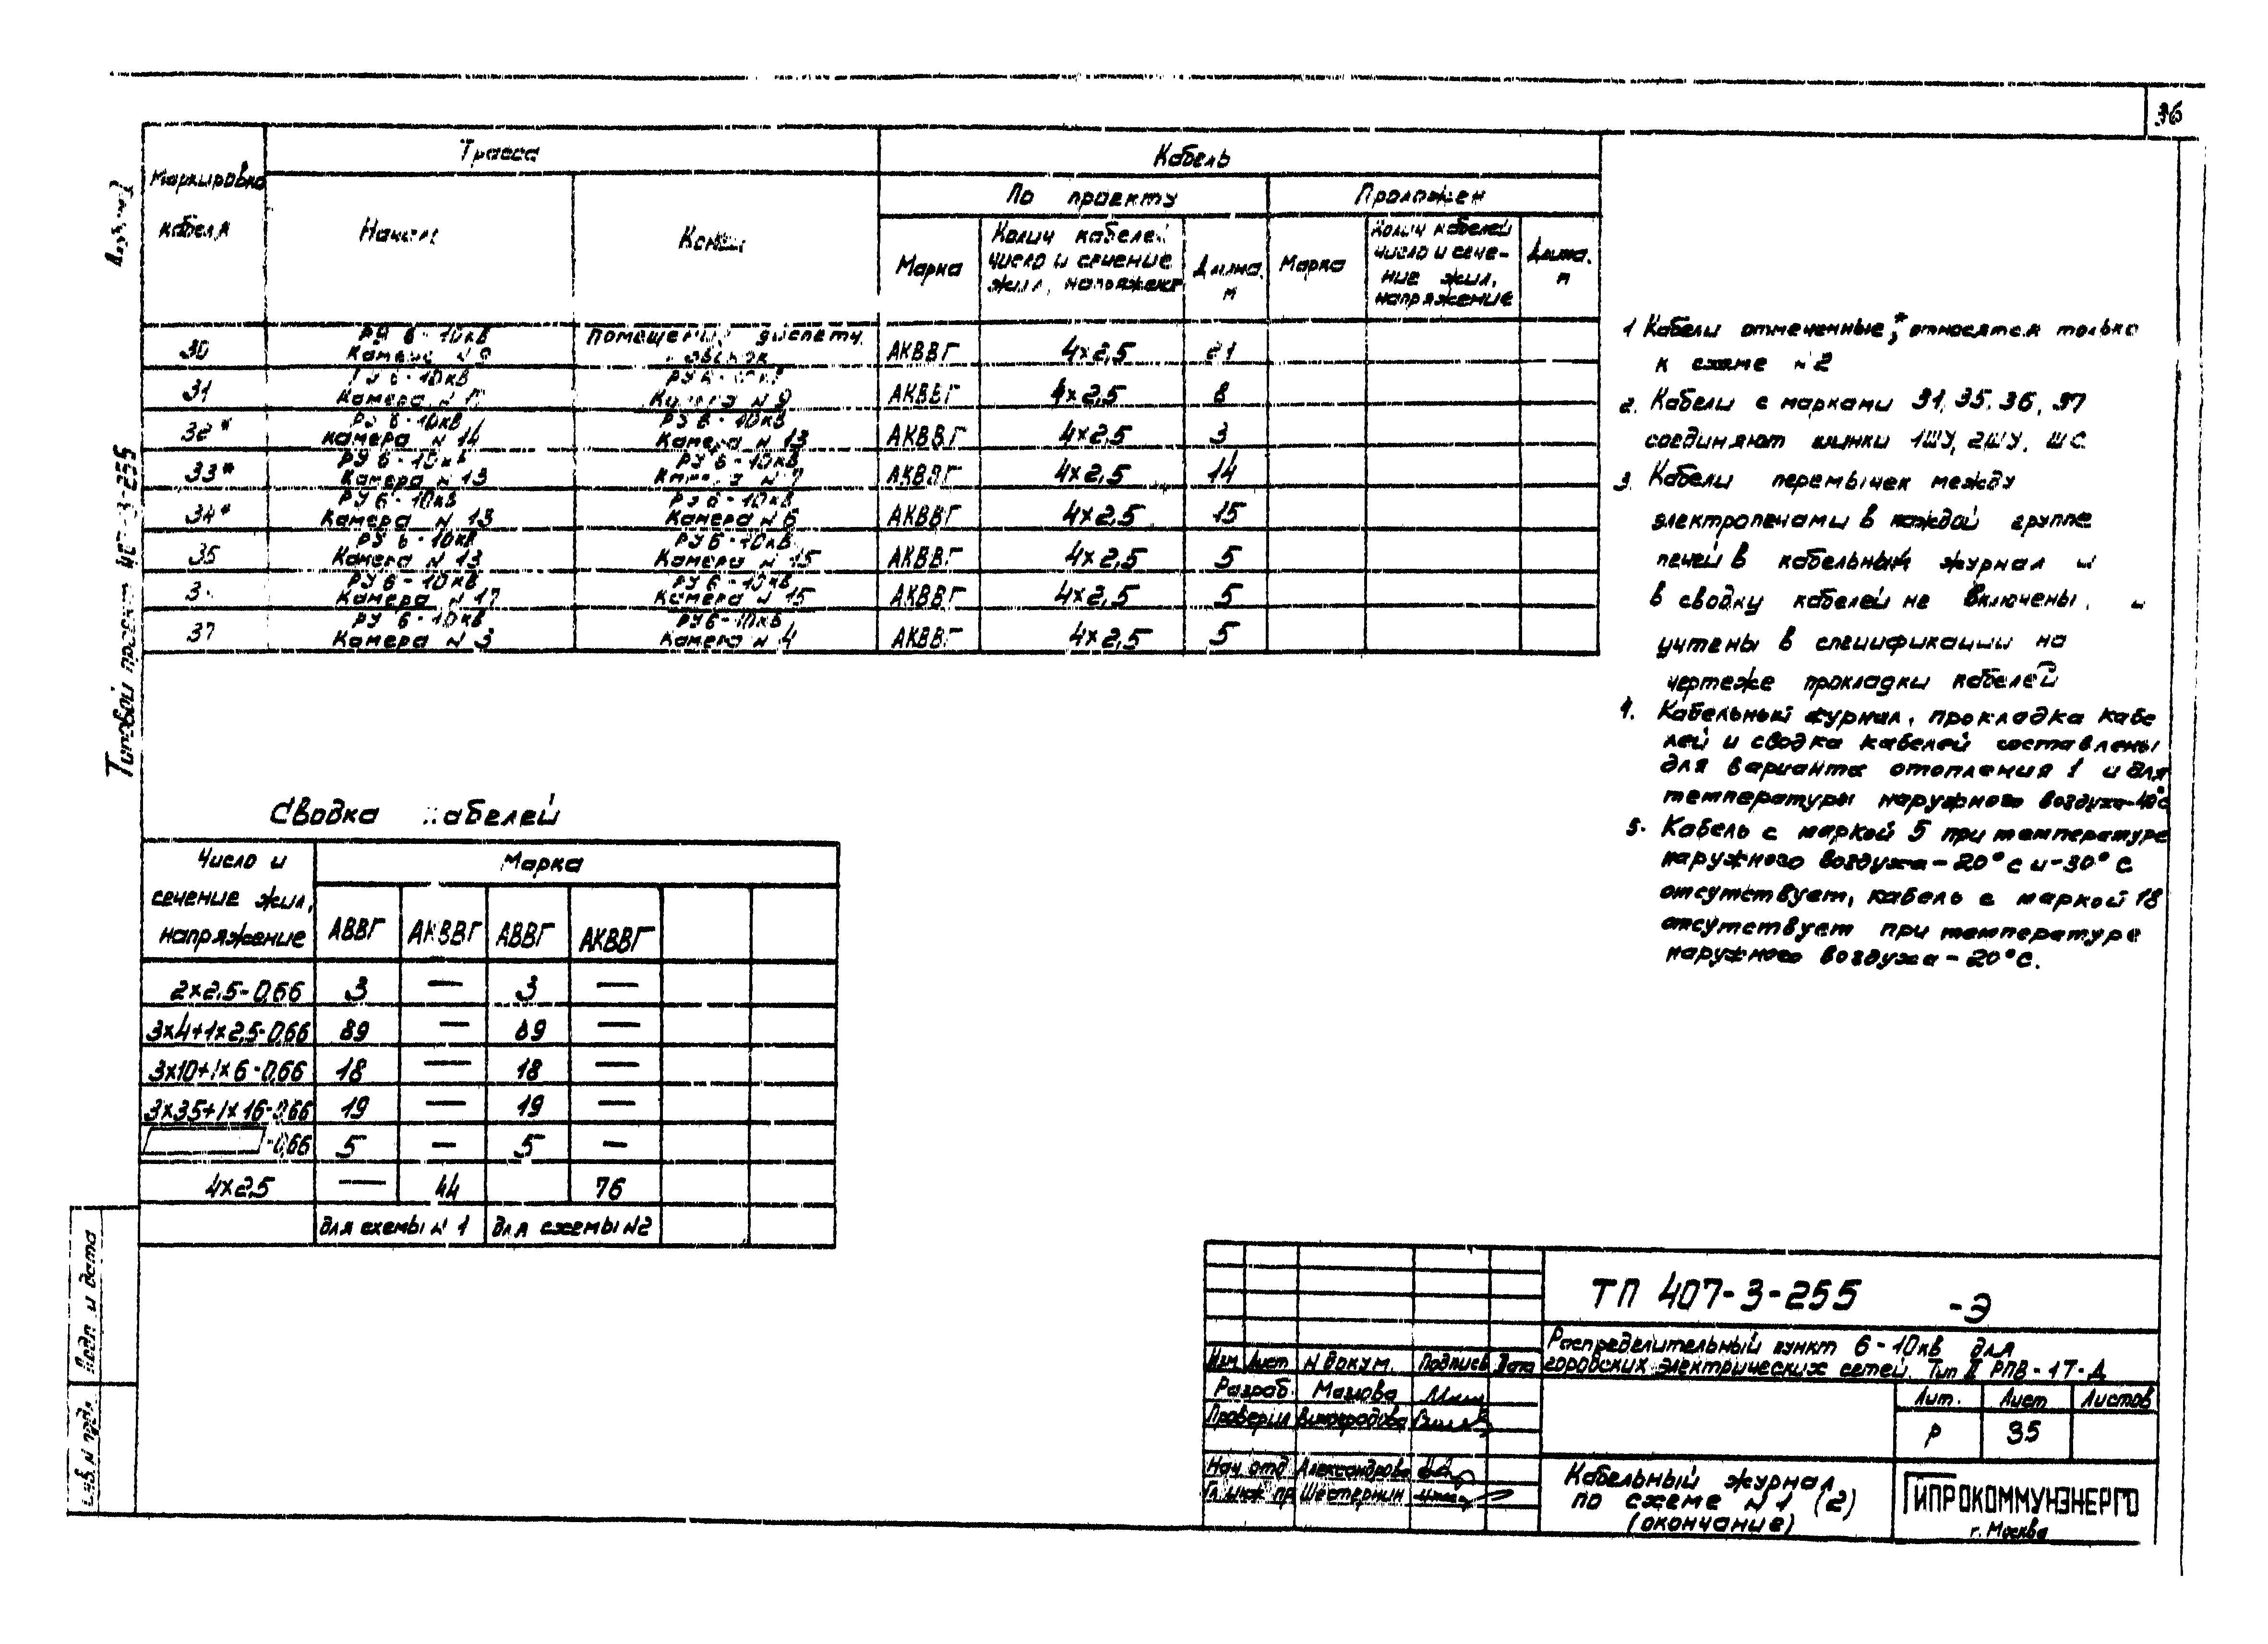 36
Трасса
Кабель
Маркировка
кабеля
Начало
Конец
По проекту
Проложен
Марка
Колич кабелей
число и сечение
жил, напряжен
Длина, м
Марка
Колич кабелей
число и сече-
ние жил,
напряжение
Длина, м
30
РУ 6-10кв
Камера N 9
Помещение диспетч.
АКВВГ
4×2,5
21
31
РУ 6-10кв
Камера N
РУ 6-10кв
Камера N 9
АКВВГ
4×2,5
8
32*
РУ 6-10кв
Камера N 14
РУ 6-10кв
Камера N 13
АКВВГ
4×2,5
3
33*
РУ 6-10кв
Камера N 13
РУ 6-10кв
Камера N 7
АКВВГ
4×2,5
14
34*
РУ 6-10кв
Камера N 13
РУ 6-10кв
Камера N 6
АКВВГ
4×2,5
15
35
РУ 6-10кв
Камера N 13
РУ 6-10кв
Камера N 15
АКВВГ
4×2,5
5
3
РУ 6-10кв
Камера N 17
РУ 6-10кв
Камера N 15
АКВВГ
4×2,5
5
37
РУ 6-10кв
Камера N 3
РУ 6-10кв
Камера N 4
АКВВГ
4×2,5
5
1 Кабели отмеченные „*" относятся только
к схеме N 2
2. Кабели с марками 31, 35, 36, 37
соединяют шинки 1ШУ, 2ШУ, ШС
3. Кабели перемычек между
электропечами в каждой группе
печей в кабельный журнал и
в сводку кабелей не включены, и
учтены в спецификации на
чертеже прокладки кабелей
4. Кабельный журнал, прокладка кабе
лей и сводка кабелей составлены
для варианта отопления 1 и для
температуры наружного воздуха-40°с
5. Кабель с маркой 5 при температуре
наружного воздуха-20°с и-30°С
отсутствует, кабель с маркой 18
отсутствует при температуре
наружного воздуха-20°С.
Типовой проект 407-3-255
Сводка кабелей
Число и
сечение жил,
напряжение
Марка
АВВГ АКВВГ АВВГ АКВВГ
2×2,5-0,66 3 — 3 —
3×4+1×2,5-0,66 89 — 89 —
3×10+1×6-0,66 18 — 18 —
3×35+1×16-0,66 19 — 19 —
-0,66 5 — 5 —
4×2,5 — 44 76
для схемы N 1 для схемы N2
Подп. и дата
Инв. N подл.
ТП 407-3-255 -Э
Распределительный пункт 6-10кв для
городских электрических сетей. Тип II РПВ-1Т-Д
Изм Лист N докум. Подпись Дата
Разраб. Маслова
Проверил Виноградова
Нач отд Александрова
Гл инж пр Шестернин
Лит. Лист Листов
Р 35
Кабельный журнал
по схеме N 1 (2)
(окончание)
ГИПРОКОММУНЭНЕРГО
г. Москва